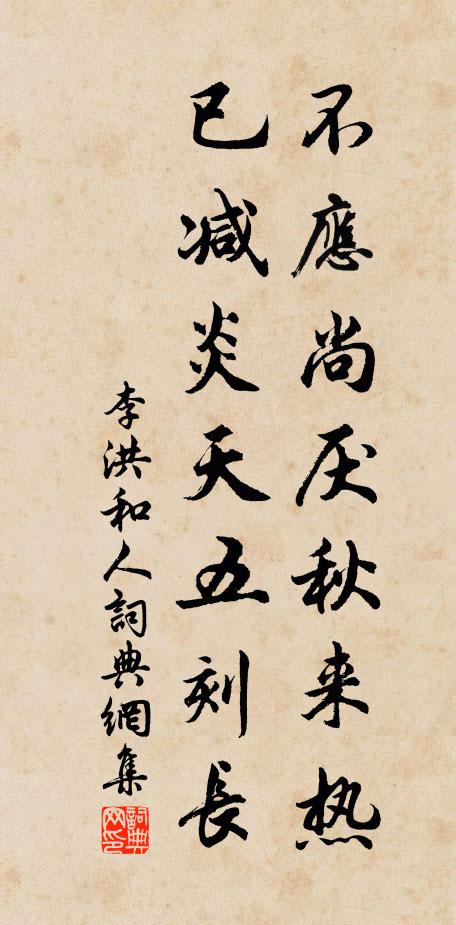 不應尚厌秋来热
已减炎天五刻長
李洪和人詞典網集
詞典网印